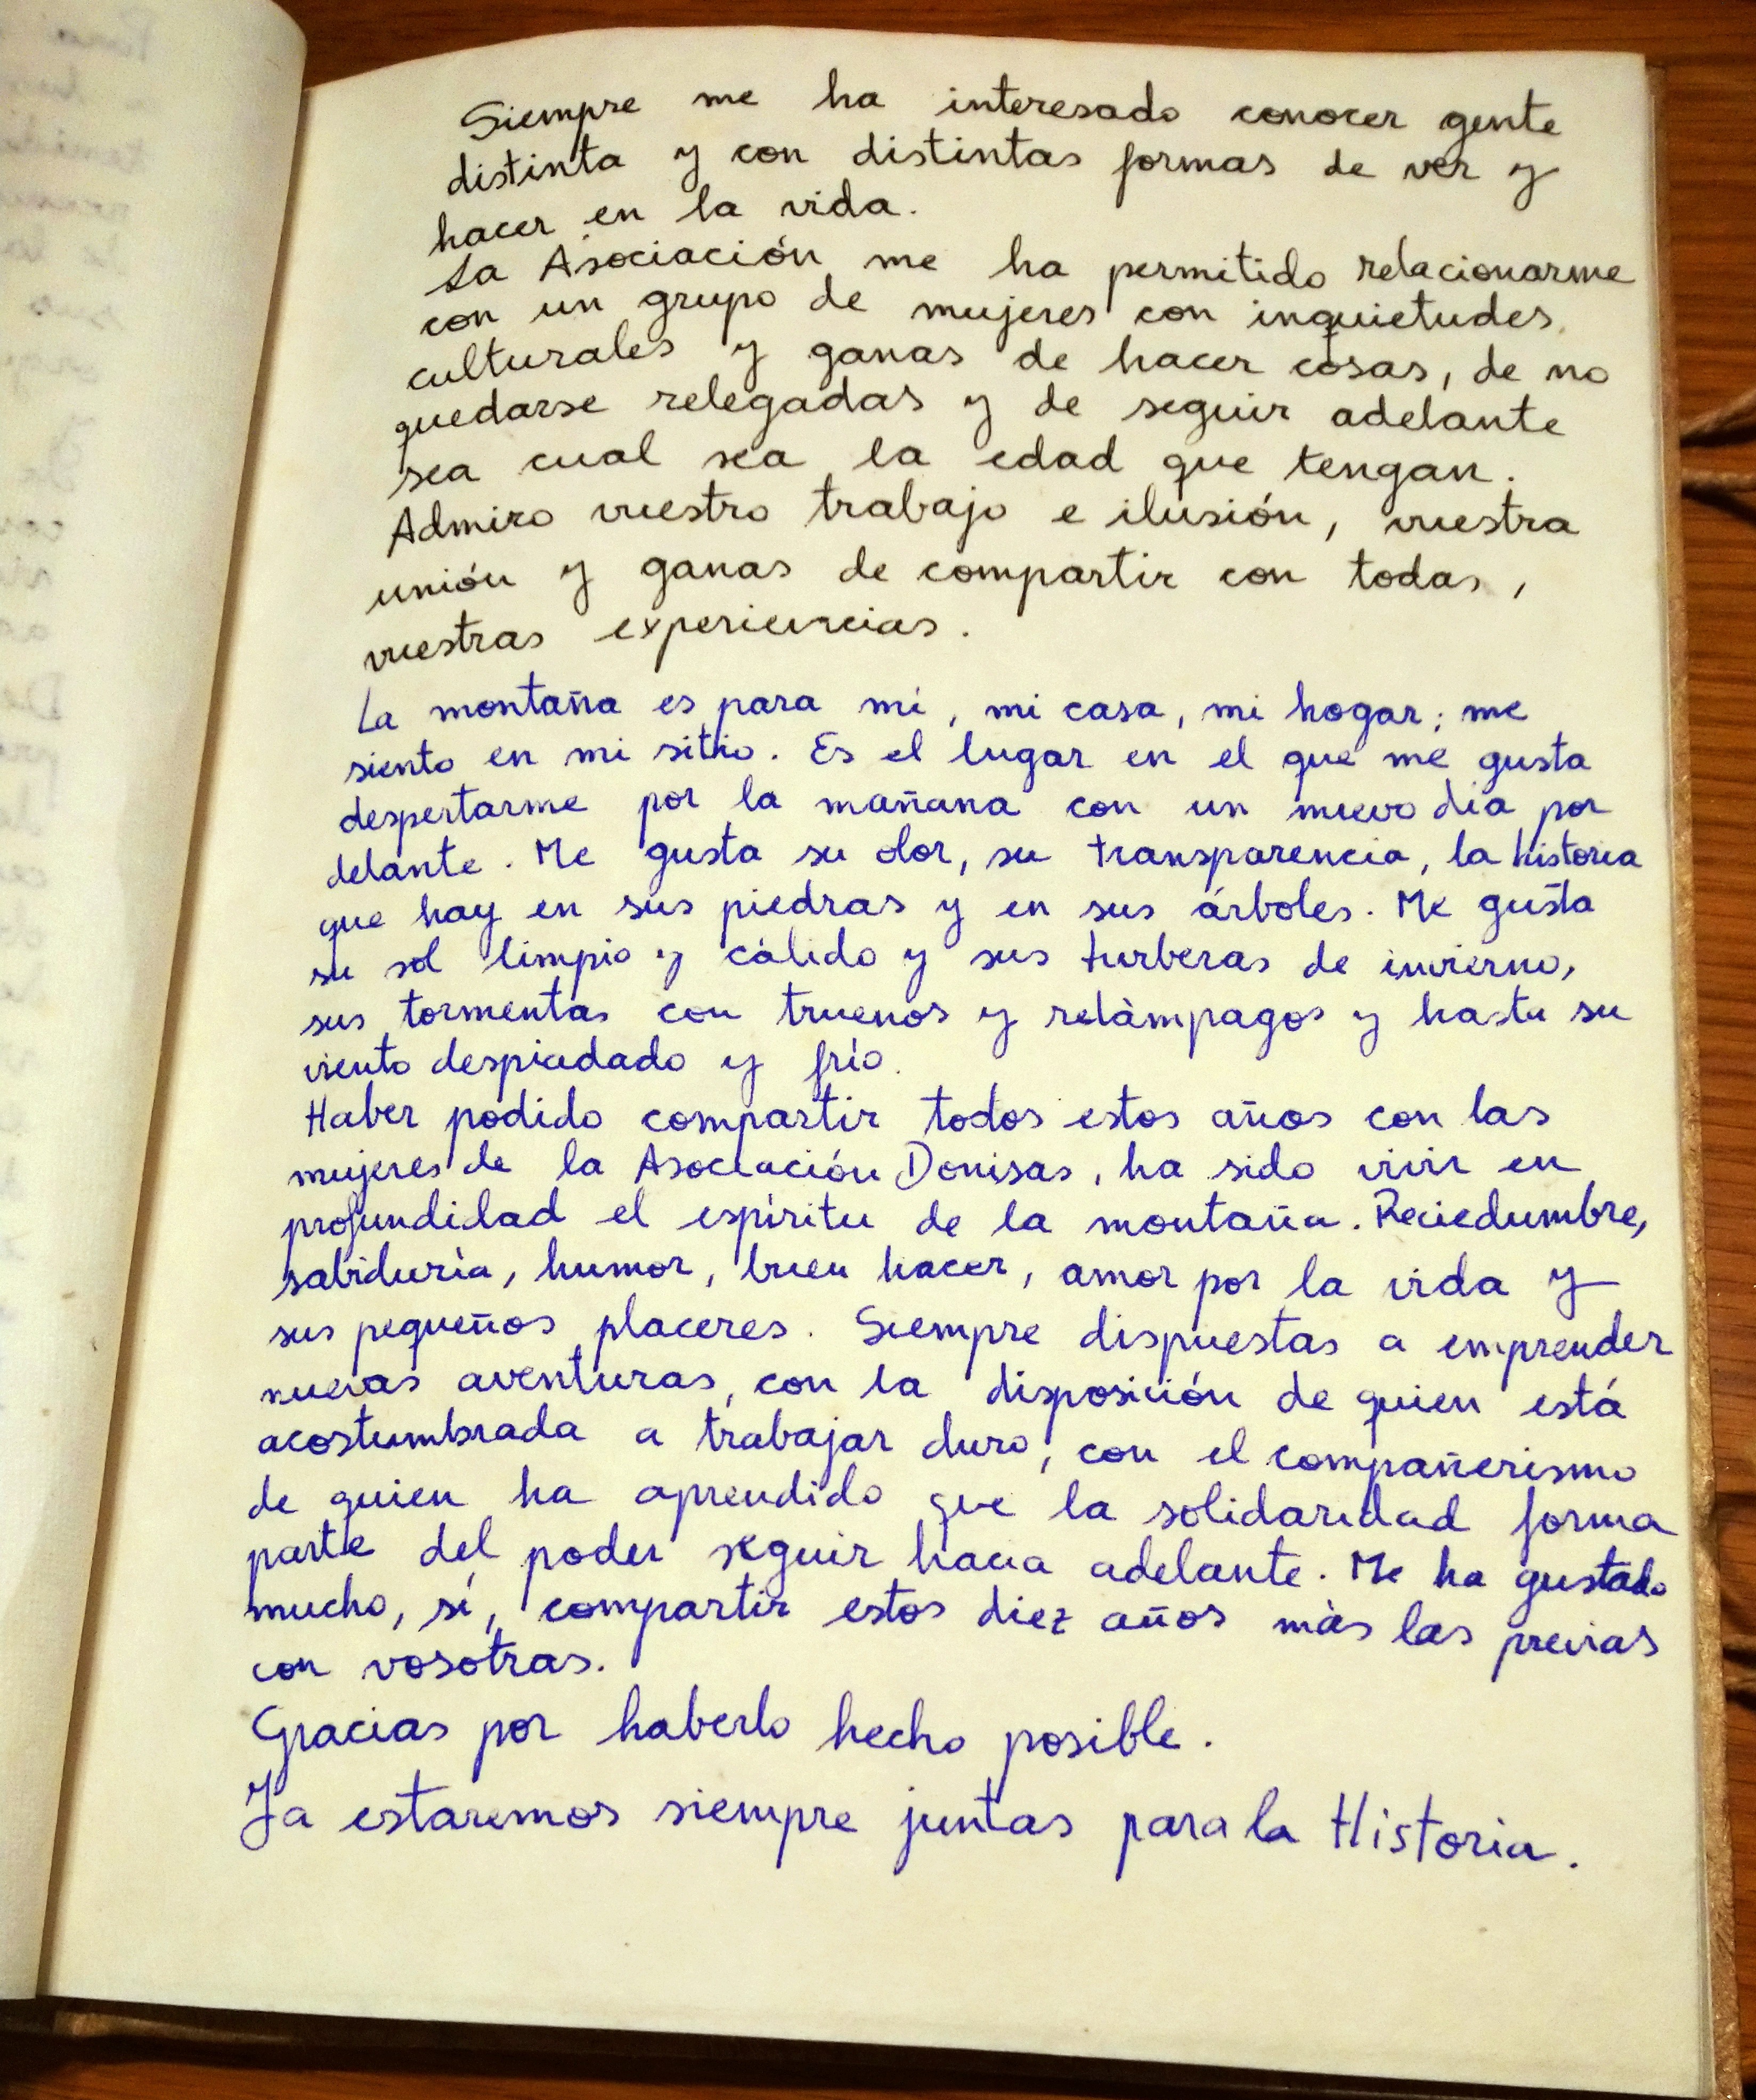 Siempre me ha interesado conocer gente
distinta y con distintas formas de ver y
hacer en la vida.
La Asociación me ha permitido relacionarme
con un grupo de mujeres con inquietudes
culturales y ganas de hacer cosas, de no
quedarse relegadas y de seguir adelante
sea cual sea la edad que tengan.
Admiro vuestro trabajo e ilusión, vuestra
unión y ganas de compartir con todas,
vuestras experiencias.
La montaña es para mí, mi casa, mi hogar; me
siento en mi sitio. Es el lugar en el que me gusta
despertarme por la mañana con un nuevo día por
delante. Me gusta su olor, su transparencia, la historia
que hay en sus piedras y en sus árboles. Me gusta
su sol limpio y cálido y sus turberas de invierno,
sus tormentas con truenos y relàmpagos y hasta su
viento despiadado y frío.
Haber podido compartir todos estos años con las
mujeres de la Asociación Donisas, ha sido vivir en
profundidad el espíritu de la montaña. Reciedumbre,
sabiduría, humor, buen hacer, amor por la vida y
sus pequeños placeres. Siempre dispuestas a emprender
nuevas aventuras, con la disposición de quien está
acostumbrada a trabajar duro, con el compañerismo
de quien ha aprendido que la solidaridad forma
parte del poder seguir hacia adelante. Me ha gustado
mucho, sí, compartir estos diez años màs las previas
con vosotras.
Gracias por haberlo hecho posible.
Ya estaremos siempre juntas para la Historia.